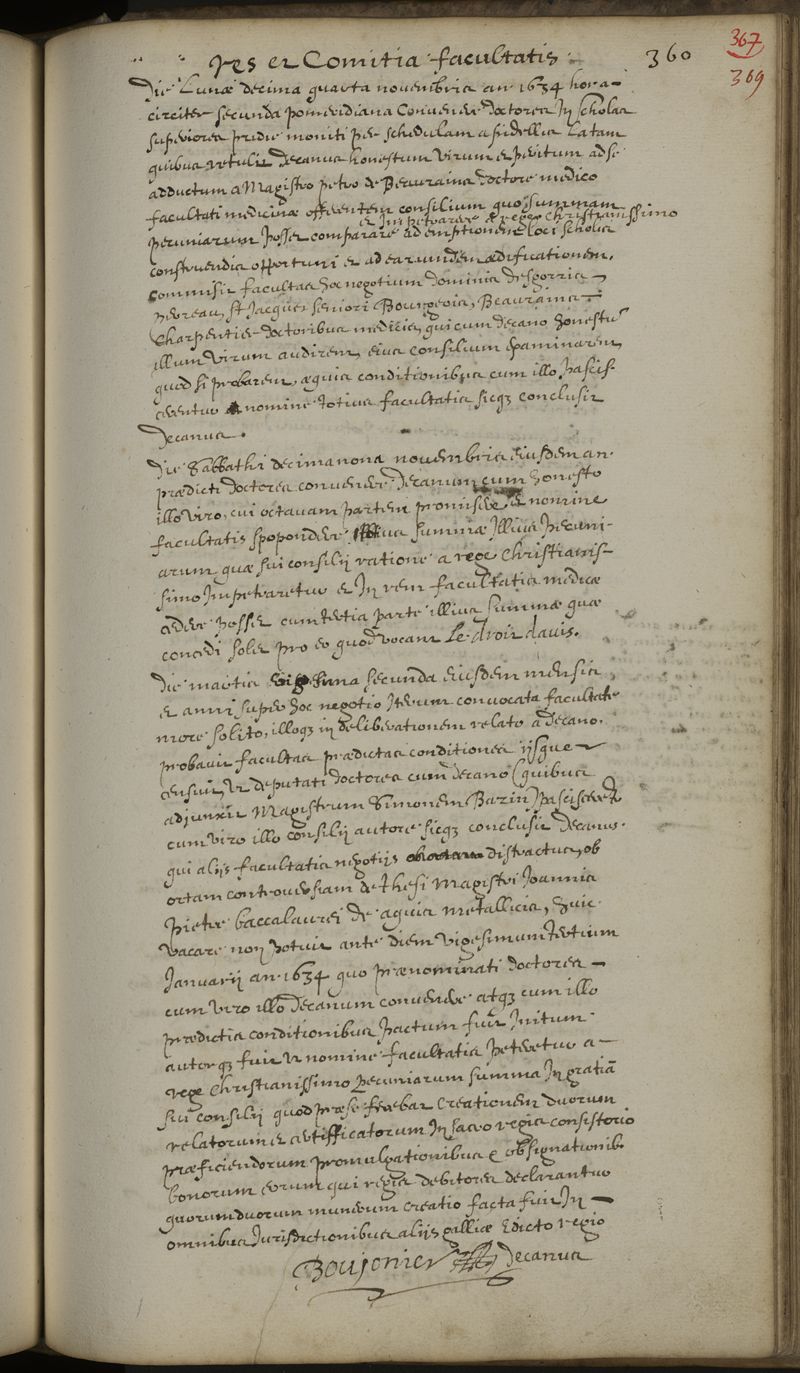 res et Comitia facultatis 360 367
369
Die Lunæ decima quarta novembris an 1634 hora
circiter secunda pomeridiana Convenere doctores In scholas
superiores pridie moniti per schedulam a fidellis Latam
quibus retulit decanus honestum virum et peritum ad se
adductum a Magistro petro de Beaurains doctore medico
facultati medicinæ offerentem consilium quo summam
et impetrare a rege christianissimo
pecuniarum posset comparare ad emptionem loci scholis
construendis opportuni et ad earumdem ædificationem.
commisit facultas hoc negotium dominis
perreau, St Jacques seniori Bourgeois, Beaurains
Charpentier doctoribus medicis, qui cum decano honestū
illum virum audirent, eius consilium examinarent
quod si probarent, æquis conditionibus cum illo pascis-
cerentur nomine totius facultatis sicq; conclusit
Decanus.
Die Sabbathi decimanona novembris eiusdem an.
prædicti doctores convenere decanum cum honesto
illo viro, cui octavam partem promisere et nomine
facultatis spopondere illius summæ illius pecuni-
arum quæ sui consilij ratione a rege christianis-
simo Impetraretur et In rem facultatis medicæ
cedere posset cum tertia parte illius summæ quæ
concedi solet pro eo quod vocant Le droit davis.
Die martis vigesima secunda eiusdem mensis
et anni super hoc negotio Iterum convocata facultate
more solito, illoq; in deliberationem relato a decano.
probavit facultas prædictas conditiones ijsque
censuit ut deputati doctores cum decano (quibus
adjunxit Magistrum Simonem Bazin) pasciscerētr
cum viro illo consilij autore sicq; conclusit decanus.
qui alijs facultatis negotijs distractus, ob
ortam controversiam de thesi Magistri Joannis
pietre baccalaurei de aquis metallicis, huic
vacare non potuit ante diem vigesimum tertium
Januarij an 1634 quo prænominati doctores
cum viro illo decanum convenere atq; cum illo
prædictis conditionibus pactum fuit Initum
autorq; fuit ut nomine facultatis peteretur a
rege christianissimo pecuniarum summa In gratiā
sui consilij quod præ se ferebat creationem duorum
relatorum et certifficatorum In sacro regis consistorio
præficiendorum promulgationibus et obsignationib.
bonorum eorum qui regis debitores declarantur
quorum duorum munerum creatio facta fuit In
omnibus Iurisdictionibus alijs galliæ Edicto regio
Boujonier Decanus